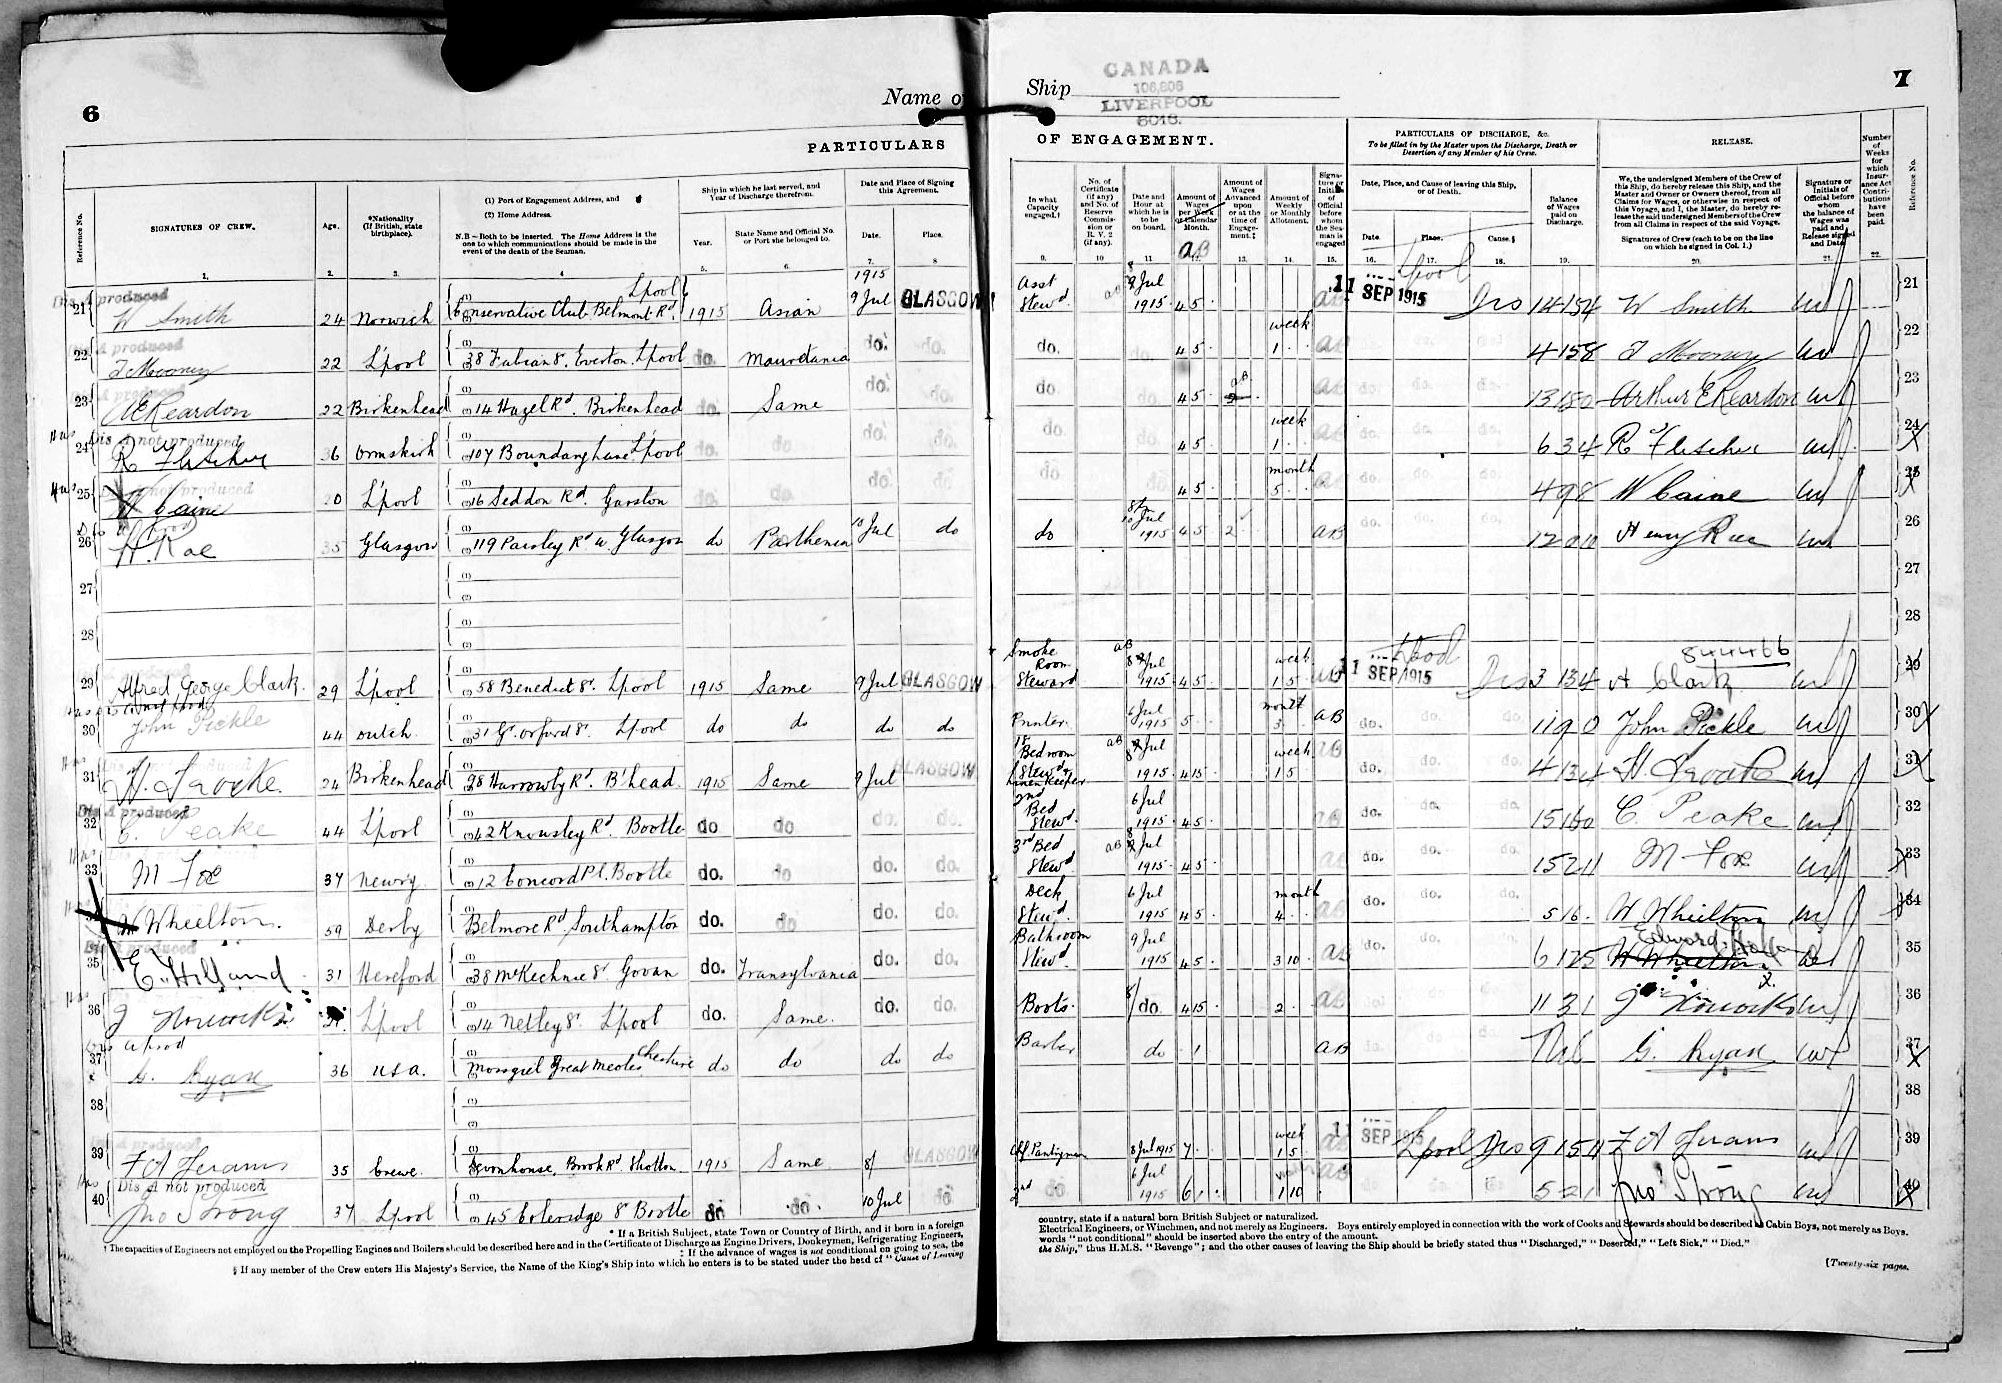 6
Name of
Ship
CANADA
106,806
LIVERPOOL
6018.
7
PARTICULARS
OF ENGAGEMENT.
PARTICULARS OF DISCHARGE, &c.
To be filled in by the Master upon the Discharge, Death or
Desertion of any Member of his Crew.
RELEASE.
Number of Weeks for which Insurance Act Contributions have been paid.
Reference No.
Reference No.
SIGNATURES OF CREW.
Age.
*Nationality
(If British, state
birthplace).
(1) Port of Engagement Address, and
(2) Home Address.
N.B—Both to be inserted. The Home Address is the
one to which communications should be made in the
event of the death of the Seaman.
Ship in which he last served, and
Year of Discharge therefrom.
Year.
State Name and Official No.
or Port she belonged to.
Date and Place of Signing
this Agreement.
Date.
Place.
In what
Capacity
engaged.†
No. of
Certificate
(if any)
and No. of
Reserve
Commis-
sion or
R. V. 2
(if any).
Date and
Hour at
which he is
to be
on board.
Amount of
Wages
per Week
or Calendar
Month.
Amount of
Wages
Advanced
upon
or at the
time of
Engage-
ment.‡
Amount of
Weekly
or Monthly
Allotment.
Signa-
ture or
Initials
of
Official
before
whom
the Sea-
man is
engaged
Date, Place, and Cause of leaving this Ship,
or of Death.
Date.
Place.
Cause.§
Balance
of Wages
paid on
Discharge.
We, the undersigned Members of the Crew of
this Ship, do hereby release this Ship, and the
Master and Owner or Owners thereof, from all
Claims for Wages, or otherwise in respect of
this Voyage, and I, the Master, do hereby re-
lease the said undersigned Members of the Crew
from all Claims in respect of the said Voyage.
Signatures of Crew (each to be on the line
on which he signed in Col. 1.)
Signature or
Initials of
Official before
whom
the balance of
Wages was
paid and
Release signed
and Date.
1. 2. 3. 4 5. 6. 7. 8 9. 10 11. 13. 14. 15. 16. 17. 18. 19. 20. 21. 22.
Dis A produced
21 W Smith 24 Norwich Conservative Club Belmont Rd. L'pool 1915 Asian 1915 9 Jul GLASGOW Asst Stewd. 9 Jul 1915 4 5 11 SEP 1915 L'pool Dis 14 15 4 W Smith 21
produced
22 T Mooney 22 L'pool 38 Fabian St. Everton L'pool do. Mauretania do. do. do. 4 5 week 1 4 15 8 T Mooney 22
A produced
23 AE Reardon 22 Birkenhead 14 Hazel Rd. Birkenhead do. Same do. do. do 4 5 aB 13 18 0 Arthur E Reardon 23
Dis A not produced
24 R Fletcher 36 Ormskirk 107 Boundary Lane L'pool do. do. do. do. do 4 5 week 1 6 3 4 R Fletcher 24
not produced
25 W Caine 20 L'pool 16 Seddon Rd. Garston do. do. do. do. do 4 5 month 5 4 9 8 W Caine 25
26 H. Rae 35 Glasgow 119 Paisley Rd W Glasgow do Parthenia 10 Jul do do 10 Jul 1915 4 5 2 aB 12 0 11 Henry Rae 26
27 27
28 28
844466
29 Alfred George Clark. 29 L'pool 58 Benedict St. L'pool 1915 Same 9 Jul GLASGOW Smoke Room Steward aB 8 Jul 1915 4 5 week 1 5 11 SEP 1915 L'pool Dis 3 13 4 A Clark 29
30 John Pickle 44 Dutch. 31 Gt. Orford St. L'pool do do do do Printer. 6 Jul 1915 5 month 3 aB do. do. do. 11 9 0 John Pickle 30
31 H. Troake. 24 Birkenhead 28 Harrowby Rd. B'head. 1915 Same 9 Jul GLASGOW 1st Bedroom Stewd & Linen Keeper aB 8 Jul 1915 4 15 week 1 5 do. 4 13 4 H. Troake 31
Dis A produced
32 C. Peake 44 L'pool 42 Knowsley Rd. Bootle do do do. do. 2nd Bed Stewd. 6 Jul 1915 4 5 aB do. do. do. 15 16 0 C. Peake 32
33 M Foe 37 Newry. 12 Concord Pl. Bootle do. do do. do. 3rd Bed Stewd aB 8 Jul 1915 4 5 do. do. do. 15 2 11 M Foe 33
W Wheelton. 59 Derby Belmore Rd Southampton do. do do. do. Deck Stewd. 6 Jul 1915 4 5 month 4 aB do. do. do. 5 16 W Wheelton 34
35 E. Holland 31 Hereford 38 McKechnie St Govan do. Transylvania do. do. Bathroom Stewd. 9 Jul 1915 4 5 3 10 aB do. do. do. 6 12 5 Edward Holland W Wheelton 35
36 J 21. L'pool 14 Netley St. L'pool do. Same. do. do. Boots. 8/ do. 4 15 2 aB do. do. do. 11 3 1 J 36
37 G. Ryan 36 USA. Mossgiel Great Meols Cheshire do do do do Barber do 1 aB Nil G. Ryan 37
38 38
produced
39 35 Crewe. Devonhouse, Brook Rd Shotton 1915 Same 8/ GLASGOW Chf Pantryman 8 Jul 1915 7 week 1 5 aB 11 SEP 1915 L'pool Dis 9 15 11 39
Dis A not produced
40 Jno Strong 37 L'pool 45 Coleridge St Bootle do do. 10 Jul do 2nd do 6 Jul 1915 6 1 1 10 aB do. do. do. 5 2 1 Jno Strong 40
* If a British Subject, state Town or Country of Birth, and if born in a foreign
country, state if a natural born British Subject or naturalized.
† The capacities of Engineers not employed on the Propelling Engines and Boilers should be described here and in the Certificate of Discharge as Engine Drivers, Donkeymen, Refrigerating Engineers,
Electrical Engineers, or Winchmen, and not merely as Engineers. Boys entirely employed in connection with the work of Cooks and Stewards should be described as Cabin Boys, not merely as Boys.
‡ If the advance of wages is not conditional on going to sea, the
words "not conditional" should be inserted above the entry of the amount.
§ If any member of the Crew enters His Majesty's Service, the Name of the King's Ship into which he enters is to be stated under the head of "Cause of Leaving
the Ship," thus H.M.S. "Revenge"; and the other causes of leaving the Ship should be briefly stated thus "Discharged," "Deserted," "Left Sick," "Died."
[Twenty-six pages.